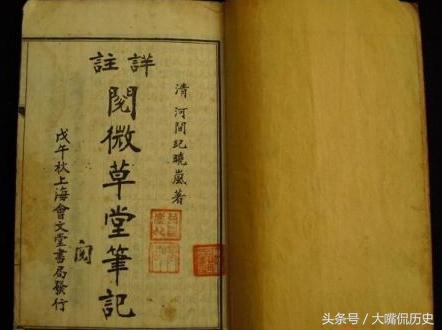 詳註
閱微草堂筆記
清河間紀曉嵐著
戊午秋上海會文堂書局發行
閱
头条号／大嘴侃历史